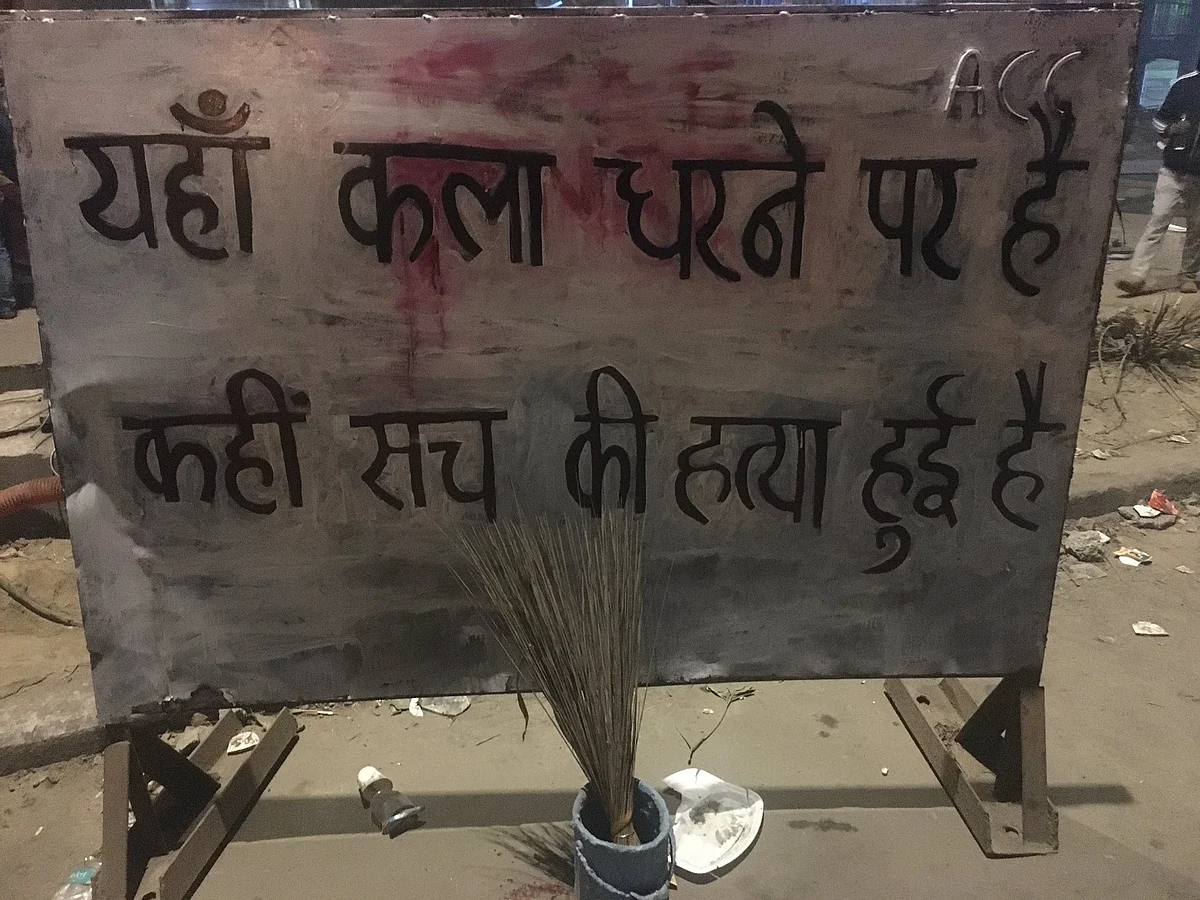 ACC
यहाँ कला धरने पर है
कहीं सच की हत्या हुई है